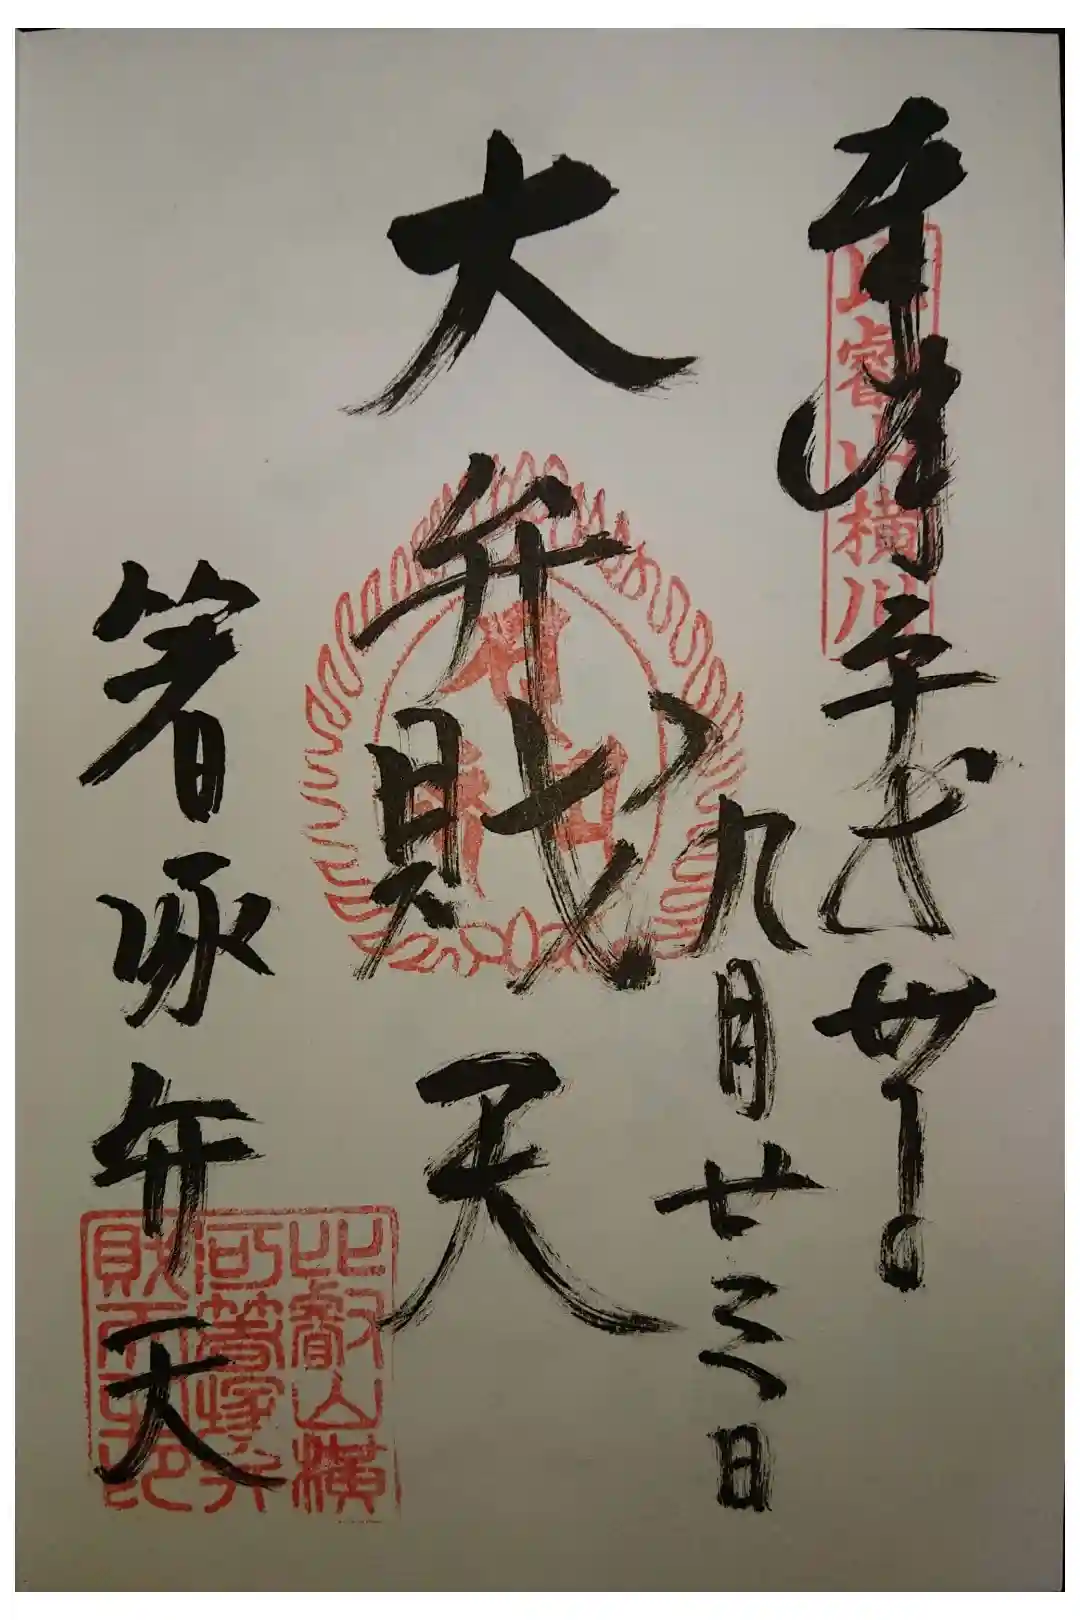 奉拝
平成卅年
九月廿三日
比睿山横川
大弁財天
箸塚弁天
比叡山横
河箸塚弁
財天之印